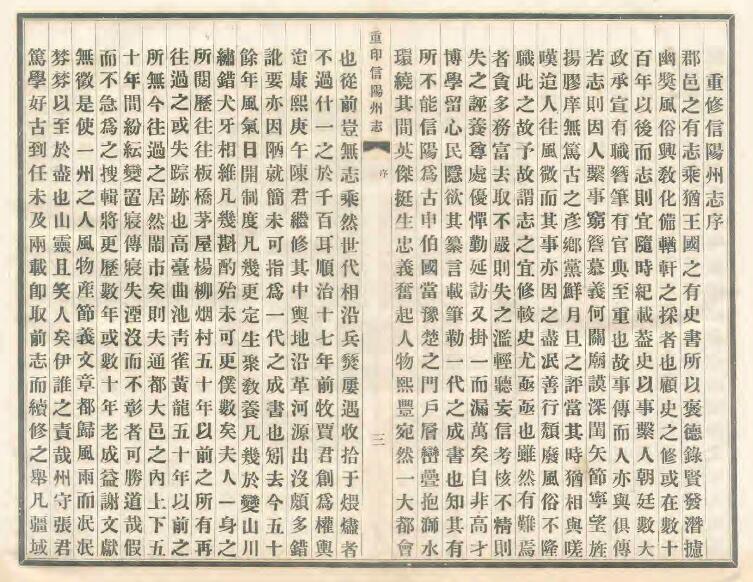 重修信陽州志序
郡邑之有志乘猶王國之有史書所以褒德錄賢發潛攄
幽奬風俗興敎化備輶軒之採者也顧史之修或在數十
百年以後而志則宜隨時紀載蓋史以事繫人朝廷數大
政承宣有職簪筆有官典至重也故事傳而人亦與俱傳
若志則因人繫事窮簷慕義何關廟謨深閨矢節寧望旌
揚膠庠無篤古之彥鄉黨鮮月旦之評當其時猶相與嗟
嘆追人往風微而其事亦因之盡冺善行頹廢風俗不隆
職此之故予故謂志之宜修較史尤亟亟也雖然有難焉
者貪多務富去取不嚴則失之濫輕聽妄信考核不精則
失之誣養尊處優憚勤延訪又掛一而漏萬矣自非高才
博學留心民隱欲其纂言載筆勒一代之成書也知其有
所不能信陽爲古申伯國當豫楚之門戶層巒疊抱溮水
環繞其間英傑挺生忠義奮起人物熙豐宛然一大都會
重印信陽州志
序
三
也從前豈無志乘然世代相沿兵燹屢遇收拾于煨燼者
不過什一之於千百耳順治十七年前牧賈君創爲權輿
迨康熙庚午陳君繼修其中輿地沿革河源出沒頗多錯
訛要亦因陋就簡未可指爲一代之成書也矧去今五十
餘年風氣日開制度凡幾更定生聚敎養凡幾於變山川
繡錯犬牙相維凡幾斟酌殆未可更僕數矣夫人一身之
所閱歷往往板橋茅屋楊柳烟村五十年以前之所有再
往過之或失踪跡也高臺曲池靑雀黃龍五十年以前之
所無今往過之居然鬧市矣則夫通都大邑之內上下五
十年間紛紜變置寢傳寢失湮沒而不彰者可勝道哉假
而不急爲之搜輯將更歷數年或數十年老成益謝文獻
無徵是使一州之人風物產節義文章都歸風雨而冺冺
棼棼以至於盡也山靈且笑人矣伊誰之責哉州守張君
篤學好古到任未及兩載卽取前志而續修之舉凡疆域